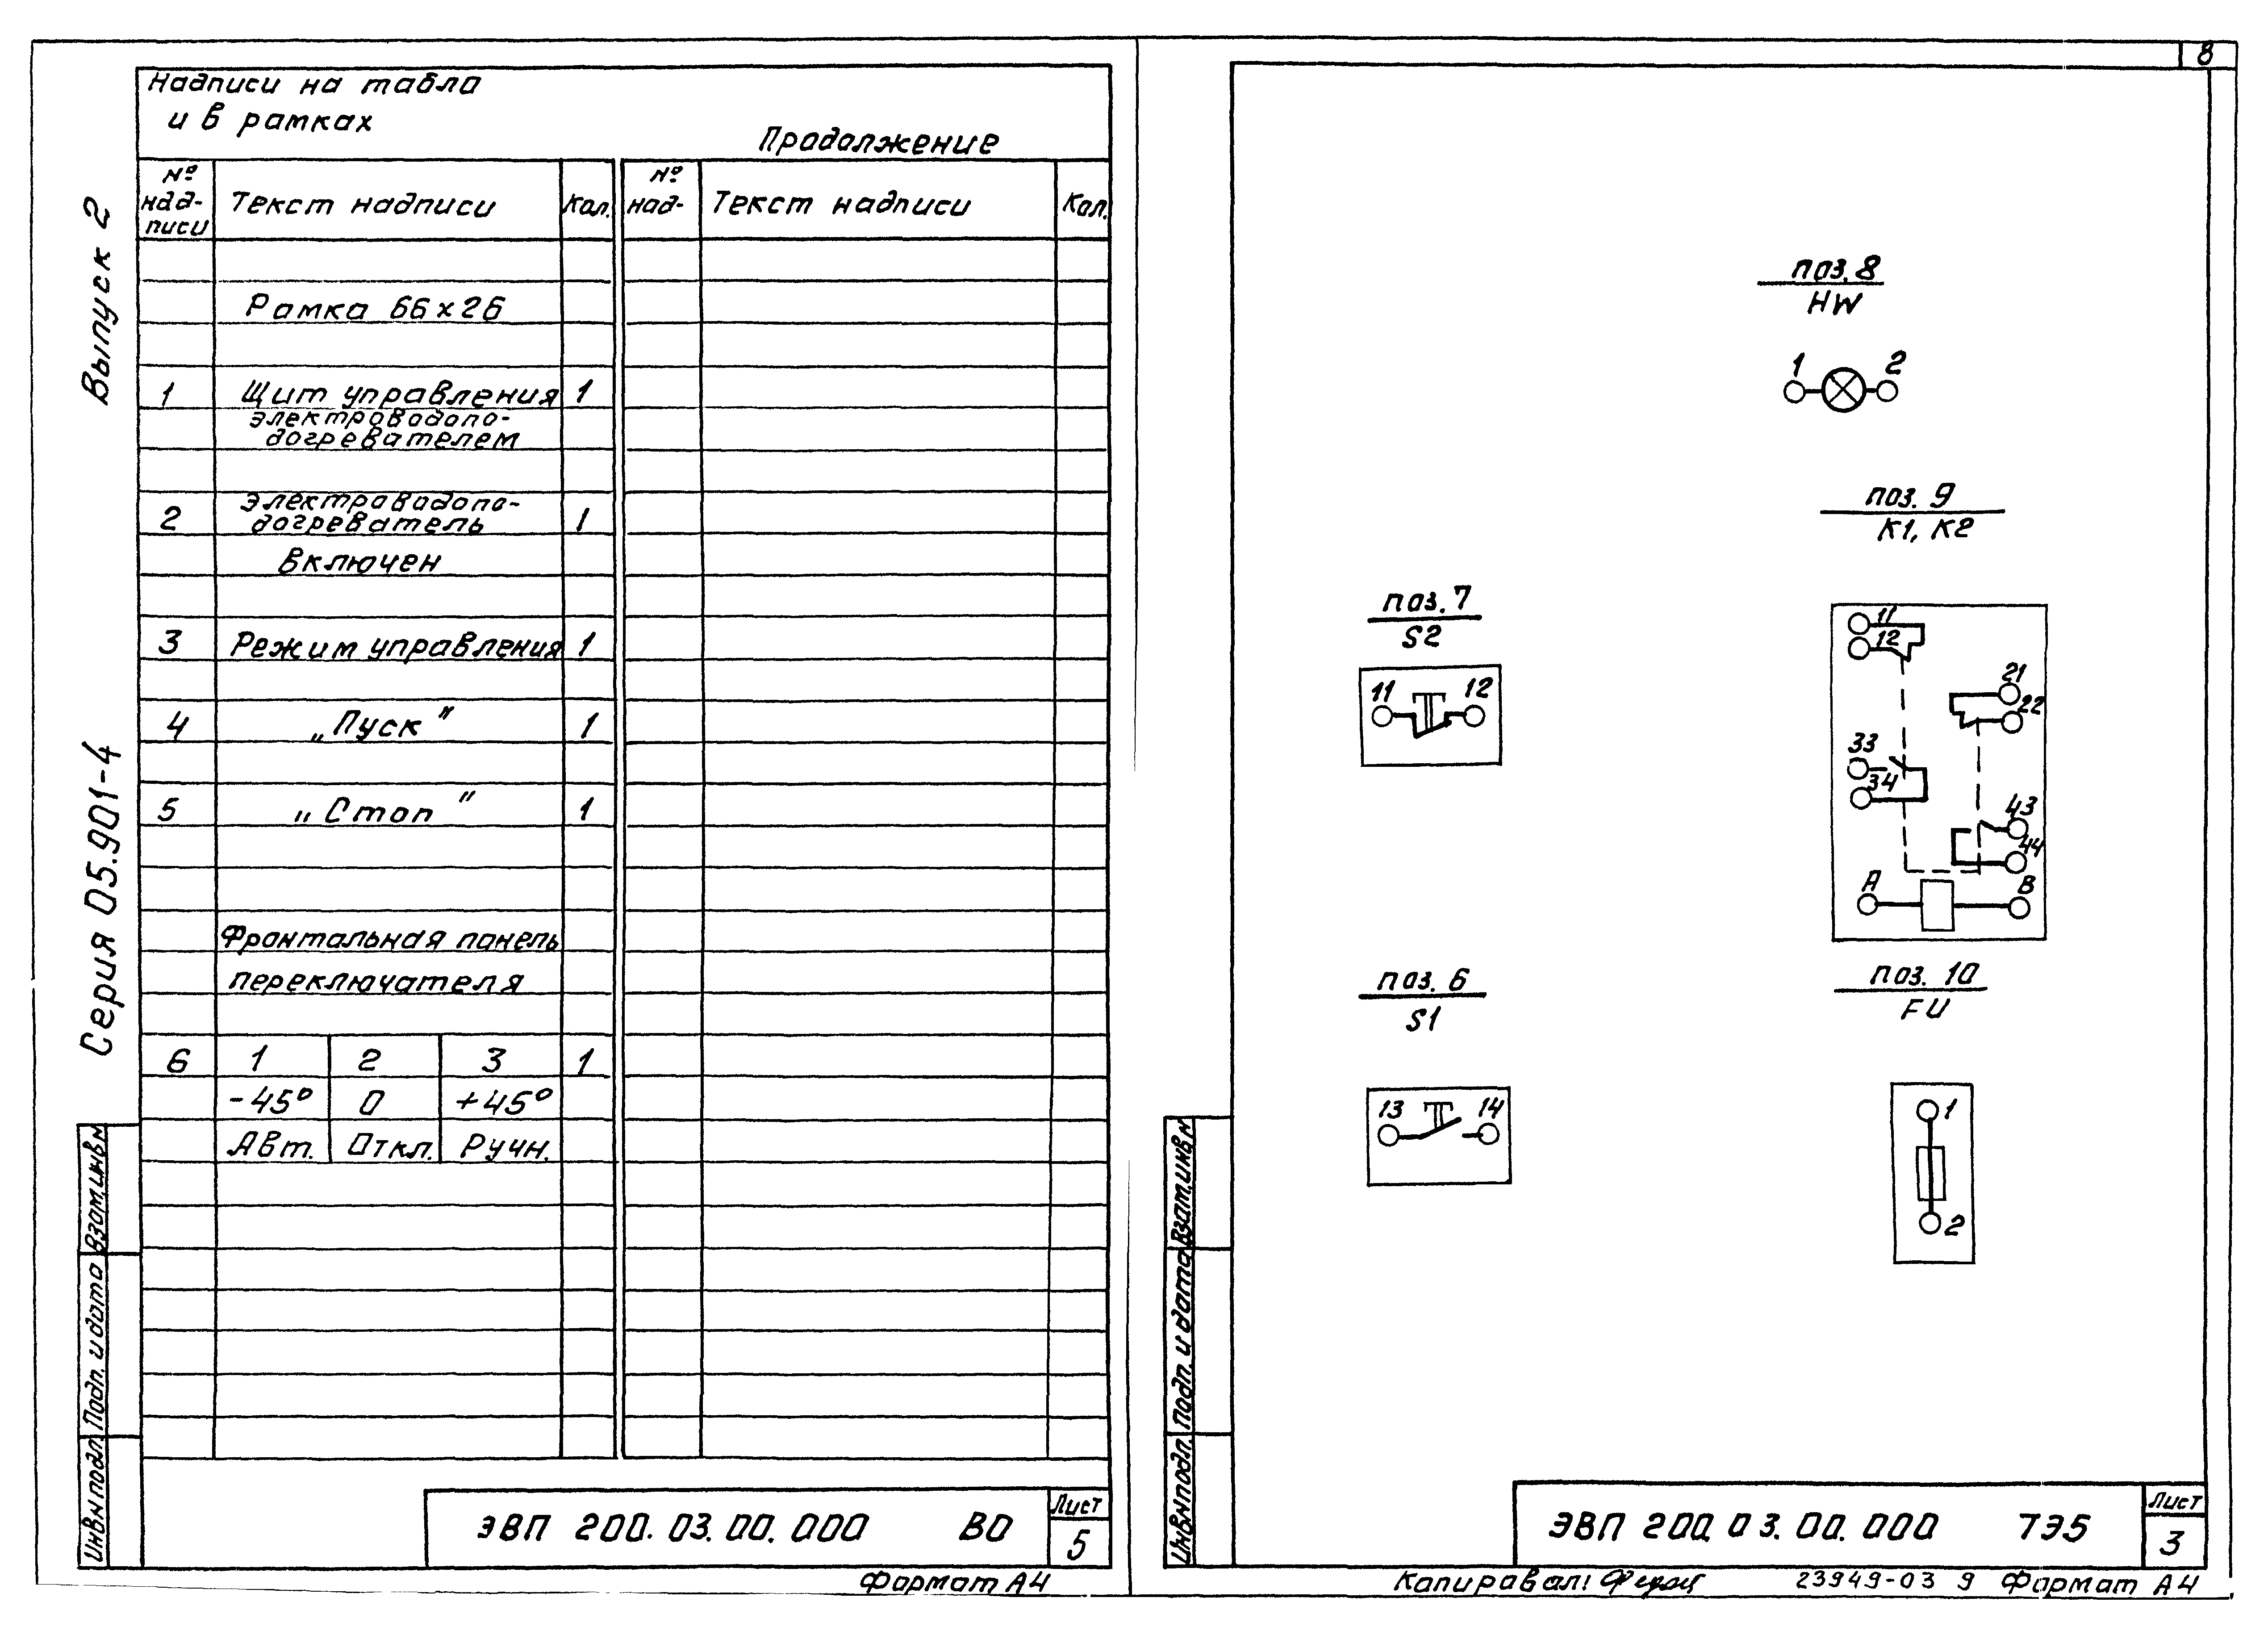 8
Надписи на табло
и в рамках
Продолжение
№ надписи Текст надписи Кол. № над- Текст надписи Кол.
Рамка 66×26
1 Щит управления 1
электроводопо-
догревателем
2 электроводопо- 1
догреватель
Включен
3 Режим управления 1
4 „Пуск" 1
5 „Стоп" 1
Фронтальная панель
переключателя
6 1 2 3 1
-45° 0 +45°
Авт. Откл. Ручн.
Серия 05.901-4 Выпуск 2
Инв.№ подл. Подп. и дата Взам.инв.№
ЭВП 200.03.00.000 ВО
Лист
5
Формат А4
поз.8
HW
1 2
поз. 9
К1, К2
11
12
21
22
33
34
43
44
А В
поз.7
S2
11 12
поз. 6
S1
13 14
поз. 10
FU
1
2
Инв.№ подл. Подп. и дата Взам.инв.№
ЭВП 200.03.00.000 ТЭ5
Лист
3
Копировал:
23949-03 9 Формат А4